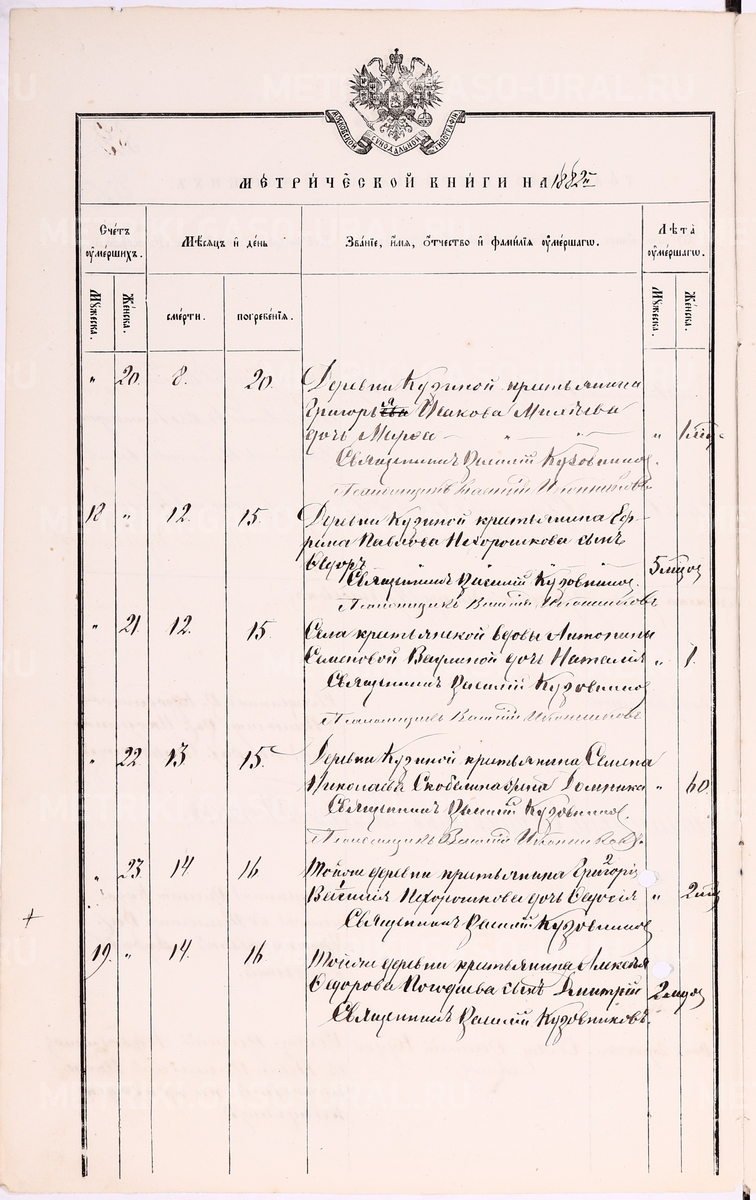 МОСКОВСКОЙ СУНОДАЛЬНОЙ ТИПОГРАФІИ
МЕТРИЧЕСКОЙ КНИГИ НА 1882й
Счетъ умершихъ.
Мѣсяцъ и день
Званіе, имя, отчество и фамилія умершаго.
Лѣта умершаго.
Мужеска.
Женска.
смерти.
погребенія.
Мужеска.
Женска.
" 20. 8. 20. Деревни Кузиной крестьянина
Григорья Исакова
дочь Марѳа " 1
Священникъ Василій Кузовниковъ.
Псаломщикъ Василій Иконниковъ.
18 " 12. 15. Деревни Кузиной крестьянина Еф-
рима Павлова Нехорошкова сынъ
Ѳедоръ 5 мцов "
Священникъ Василій Кузовниковъ.
Псаломщикъ Василій Иконниковъ
" 21 12. 15. Села крестьянской вдовы Антонины
Семеновой дочь Наталія " 1.
Священникъ Василій Кузовниковъ
Псаломщикъ Василій Иконниковъ
" 22 13 15. Деревни Кузиной крестьянина Семена
Николаева жена Домника " 60.
Священникъ Василій Кузовниковъ.
Псаломщикъ Василій Иконниковъ.
" 23 14 16 Тойже деревни крестьянина Григорія
Нехорошкова дочь Ѳедосія " 2
Священникъ Василій Кузовниковъ
19. " 14. 16 Тойже деревни крестьянина Алексѣя
Ѳедорова Погодаева сынъ Димитрій 2 мцов
Священникъ Василій Кузовниковъ.